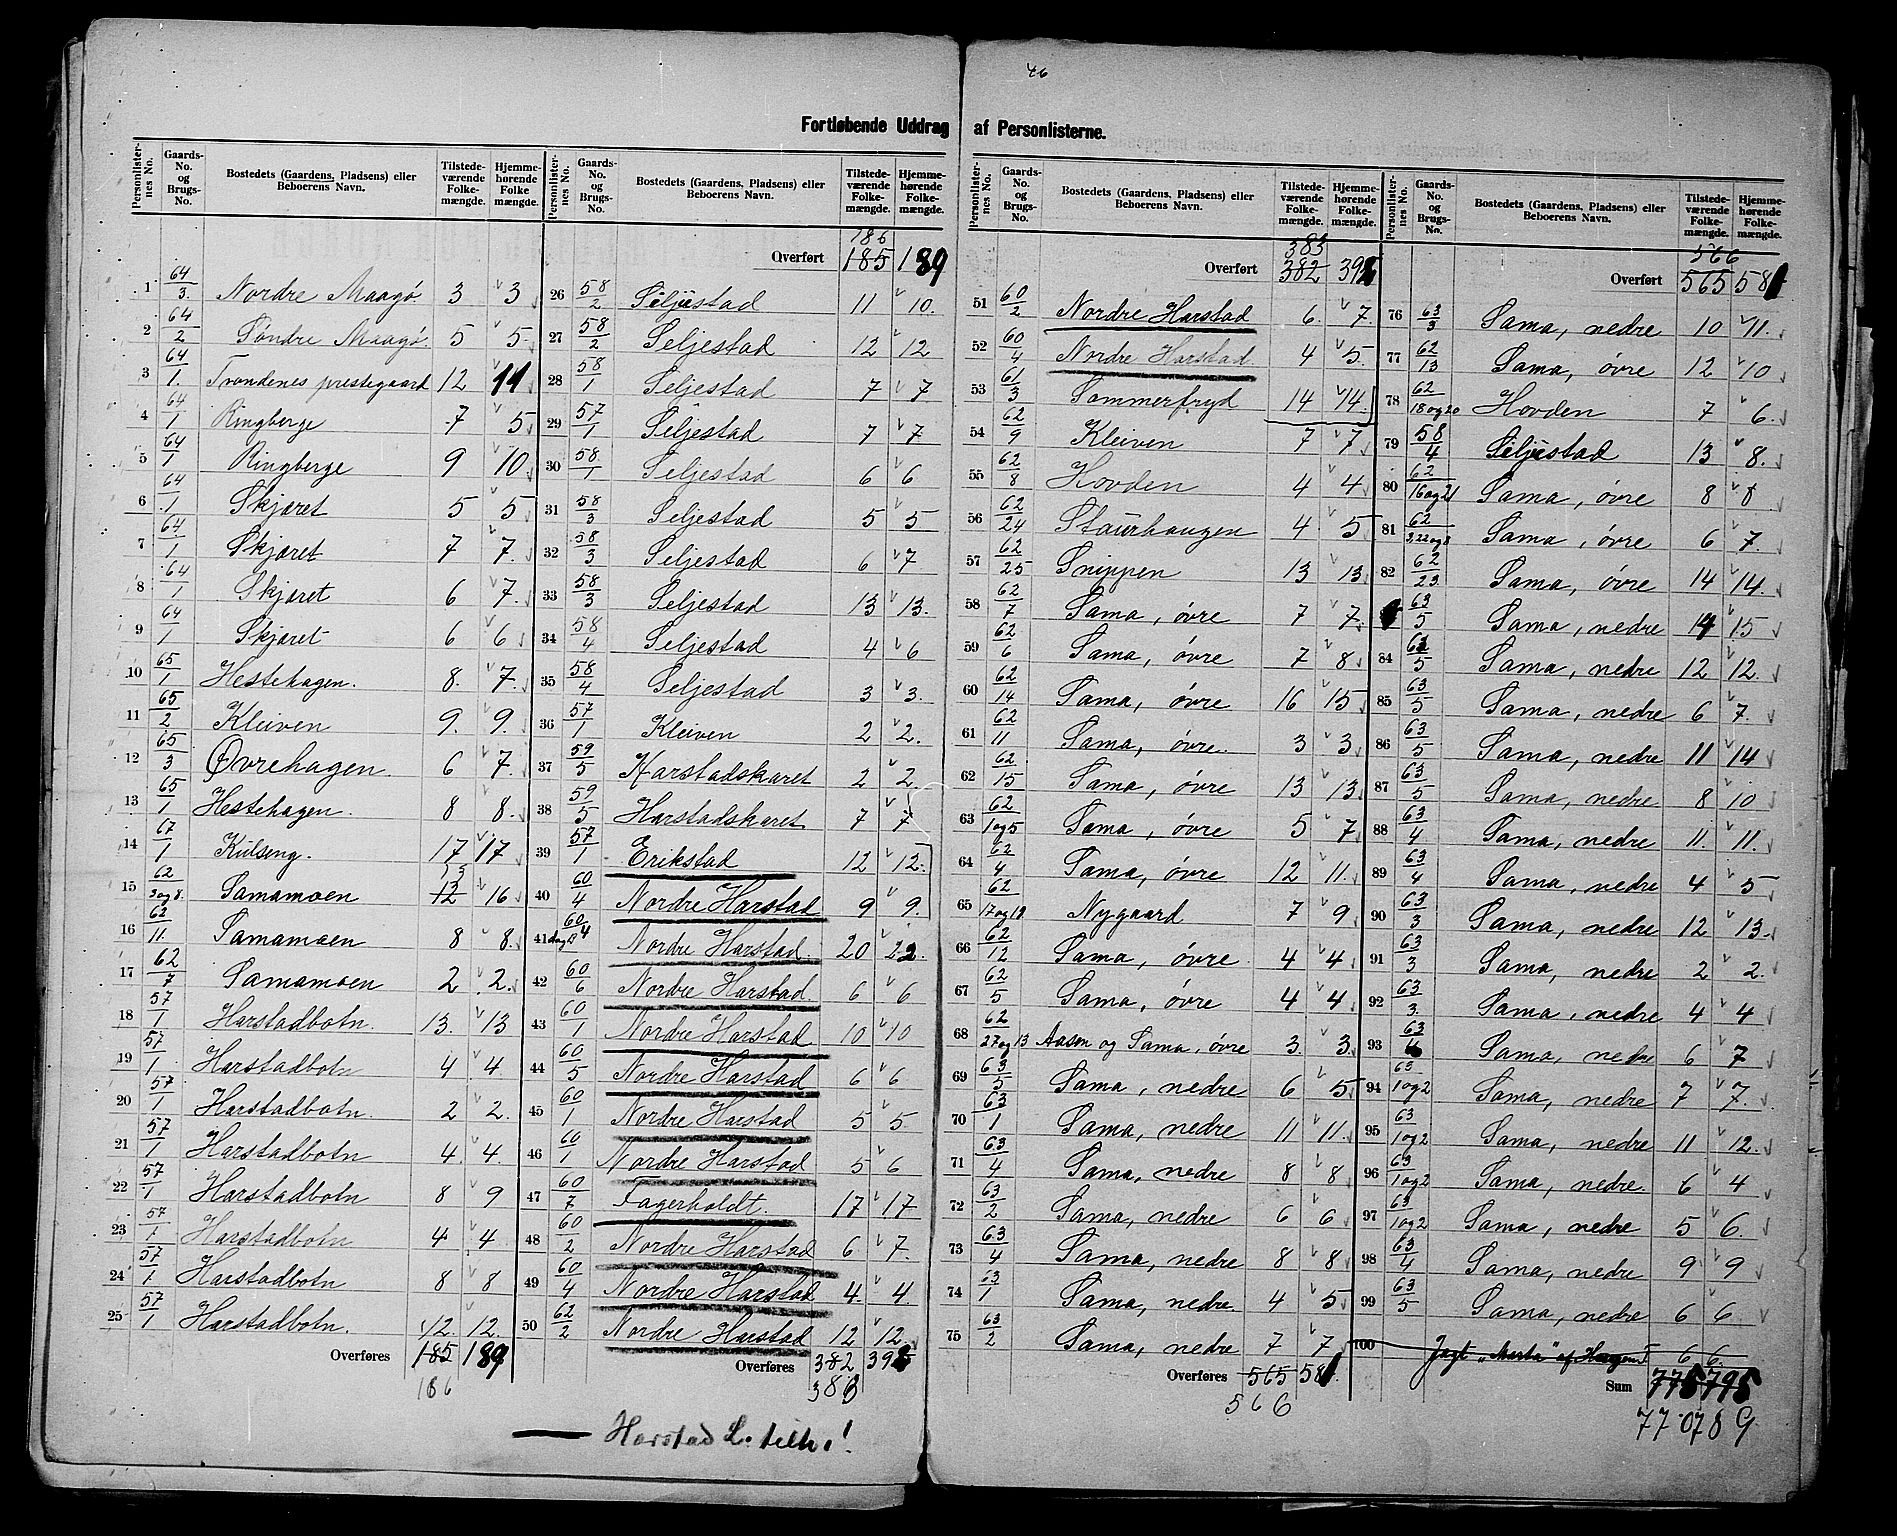 46
Fortløbende Uddrag af Personlisterne.
Personlisternes No. | Gaards-No. og Brugs-No. | Bostedets (Gaardens, Pladsens) eller Beboerens Navn. | Tilstedeværende Folkemængde. | Hjemmehørende Folkemængde.
1 64/3 Nordre Maagø 3 3
2 64/2 Søndre Maagø 5 5
3 64/1 Trondenes prestegaard 12 11
4 64/1 Ringberge 7 5
5 64/1 Ringberge 9 10
6 64/1 Skjæret 5 5
7 64/1 Skjæret 7 7
8 64/1 Skjæret 6 7
9 64/1 Skjæret 6 6
10 65/1 Hestehagen 8 7
11 65/2 Kleiven 9 9
12 65/3 Øvrehagen 6 7
13 65/1 Hestehagen 8 8
14 67/1 Kulseng 17 17
15 62/3og8 Samamoen 13 16
16 62/11 Samamoen 8 8
17 62/7 Samamoen 2 2
18 57/1 Harstadbotn 13 13
19 57/1 Harstadbotn 4 4
20 57/1 Harstadbotn 2 2
21 57/1 Harstadbotn 4 4
22 57/1 Harstadbotn 8 9
23 57/1 Harstadbotn 4 4
24 57/1 Harstadbotn 8 8
25 57/1 Harstadbotn 12 12
Overføres 185 189
186
Personlisternes No. | Gaards-No. og Brugs-No. | Bostedets (Gaardens, Pladsens) eller Beboerens Navn. | Tilstedeværende Folkemængde. | Hjemmehørende Folkemængde.
186
Overført 185 189
26 58/2 Seljestad 11 10
27 58/2 Seljestad 12 12
28 58/1 Seljestad 7 7
29 57/1 Seljestad 7 7
30 58/1 Seljestad 6 6
31 58/3 Seljestad 5 5
32 58/3 Seljestad 6 7
33 58/3 Seljestad 13 13
34 58/4 Seljestad 4 6
35 58/4 Seljestad 3 3
36 57/1 Kleiven 2 2
37 59/5 Harstadskaret 2 2
38 59/5 Harstadskaret 7 7
39 57/1 Erikstad 12 12
40 60/4 Nordre Harstad 9 9
41 60/4 Nordre Harstad 20 22
42 60/6 Nordre Harstad 6 6
43 60/1 Nordre Harstad 10 10
44 60/5 Nordre Harstad 6 6
45 60/1 Nordre Harstad 5 5
46 60/1 Nordre Harstad 5 6
47 60/7 Fagerholdt 17 17
48 60/2 Nordre Harstad 6 7
49 60/4 Nordre Harstad 4 4
50 62/2 Nordre Harstad 12 12
Overføres 382
383
Harstad L. tilh.!
Personlisternes No. | Gaards-No. og Brugs-No. | Bostedets (Gaardens, Pladsens) eller Beboerens Navn. | Tilstedeværende Folkemængde. | Hjemmehørende Folkemængde.
383
Overført 382
51 60/2 Nordre Harstad 6 7
52 60/4 Nordre Harstad 4 5
53 61/3 Sommerfryd 14 14
54 62/9 Kleiven 7 7
55 62/8 Hovden 4 4
56 62/24 Staurhaugen 4 5
57 62/25 Snippen 13 13
58 62/7 Sama, øvre 7 7
59 62/6 Sama, øvre 7 8
60 62/14 Sama, øvre 16 15
61 62/11 Sama, øvre 3 3
62 62/15 Sama, øvre 13 13
63 62/1og5 Sama, øvre 5 7
64 62/4 Sama, øvre 12 11
65 62/17og18 Nygaard 7 9
66 62/12 Sama, øvre 4 4
67 62/5 Sama, øvre 4 4
68 62/27og13 Aasen og Sama, øvre 3 3
69 63/5 Sama, nedre 6 5
70 63/1 Sama, nedre 11 11
71 63/4 Sama, nedre 8 8
72 63/2 Sama, nedre 6 6
73 63/4 Sama, nedre 8 8
74 63/1 Sama, nedre 4 5
75 63/2 Sama, nedre 7 7
Overføres 565 581
566
Personlisternes No. | Gaards-No. og Brugs-No. | Bostedets (Gaardens, Pladsens) eller Beboerens Navn. | Tilstedeværende Folkemængde. | Hjemmehørende Folkemængde.
566
Overført 565 581
76 63/3 Sama, nedre 10 11
77 62/13 Sama, øvre 12 10
78 62/18og20 Hovden 7 6
79 58/4 Seljestad 13 8
80 62/16og21 Sama, øvre 8 8
81 62 Sama, øvre 6 7
82 62/23 Sama, øvre 14 14
63/5 Sama, nedre 14 15
84 63/5 Sama, nedre 12 12
85 63/5 Sama, nedre 6 7
86 63/5 Sama, nedre 11 14
87 63/5 Sama, nedre 8 10
88 63/4 Sama, nedre 11 11
89 63/4 Sama, nedre 4 5
90 63/3 Sama, nedre 12 13
91 63/3 Sama, nedre 2 2
92 63/3 Sama, nedre 4 4
93 63 Sama, nedre 6 7
94 63/1og2 Sama, nedre 7 7
95 63/1og2 Sama, nedre 11 12
96 63/1og2 Sama, nedre 6 4
97 63/1og2 Sama, nedre 5 6
98 63/4 Sama, nedre 9 9
99 63/5 Sama, nedre 6 6
100 Jagt "Marta" af 6 6
Sum 775 795
770 789